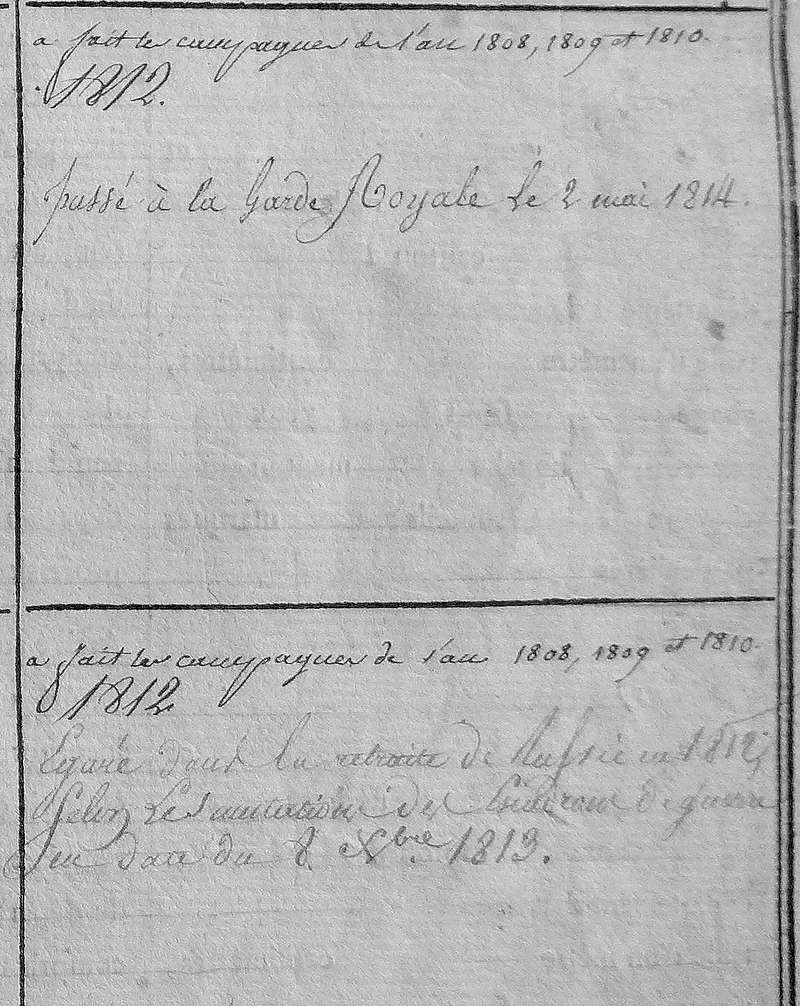 a fait les campagnes de l'an 1808, 1809 et 1810.
1812.
passé à la Garde Royale le 2 mai 1814.
a fait les campagnes de l'an 1808, 1809 et 1810.
1812
Egaré dans la retraite de Russie en 1812,
selon les mutations des Escadrons de guerre
en date du 8 Xbre 1813.